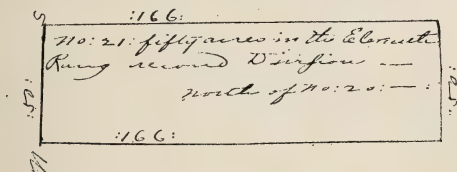 :166:
No: 21: fifty acres in the Eleventh
Rang second Division —
North of No: 20: — :
:166: